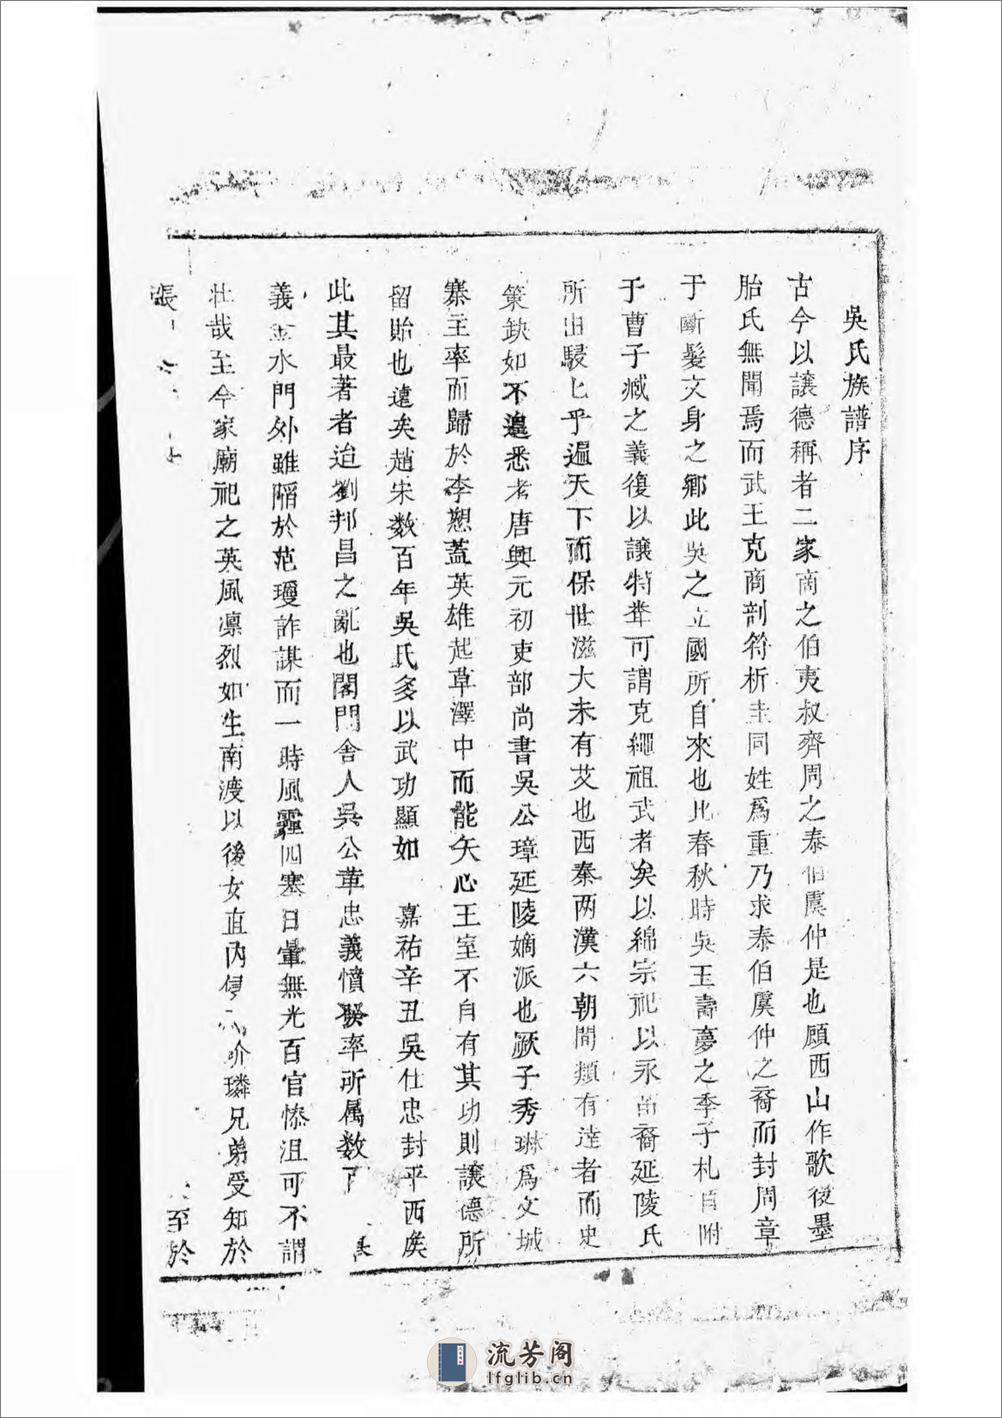 吳氏族譜序
古今以讓德稱者二家商之伯夷叔齊周之泰伯虞仲是也顧西山作歌後墨
胎氏無聞焉而武王克商剖符析圭同姓爲重乃求泰伯虞仲之裔而封周章
于斷髮文身之鄉此吳之立國所自來也比春秋時吳王壽夢之季子札自附
于曹子臧之義復以讓特聿可謂克繩祖武者矣以綿宗祀以永苗裔延陵氏
所由駸匕乎遍天下而保世滋大未有艾也西秦两漢六朝間頗有達者而史
策缺如不遑悉考唐興元初吏部尚書吳公璋延陵嫡派也厥子秀琳爲文城
寨主率而歸於李愬蓋英雄起草澤中而能矢心王室不自有其功則讓德所
留貽也遠矣趙宋数百年吳氏多以武功顯如 嘉祐辛丑吳仕忠封平西侯
此其最著者迨劉邦昌之亂也閤門舍人吳公革忠義憤發率所属数
義金水門外雖陷於范瓊詐謀而一時風霾四塞日暈無光百官慘沮可不謂
壮哉至今家廟祀之英風凛烈如生南渡以後女直内侵 玠璘兄弟受知於
張 至於
流芳阁
lfglib.cn